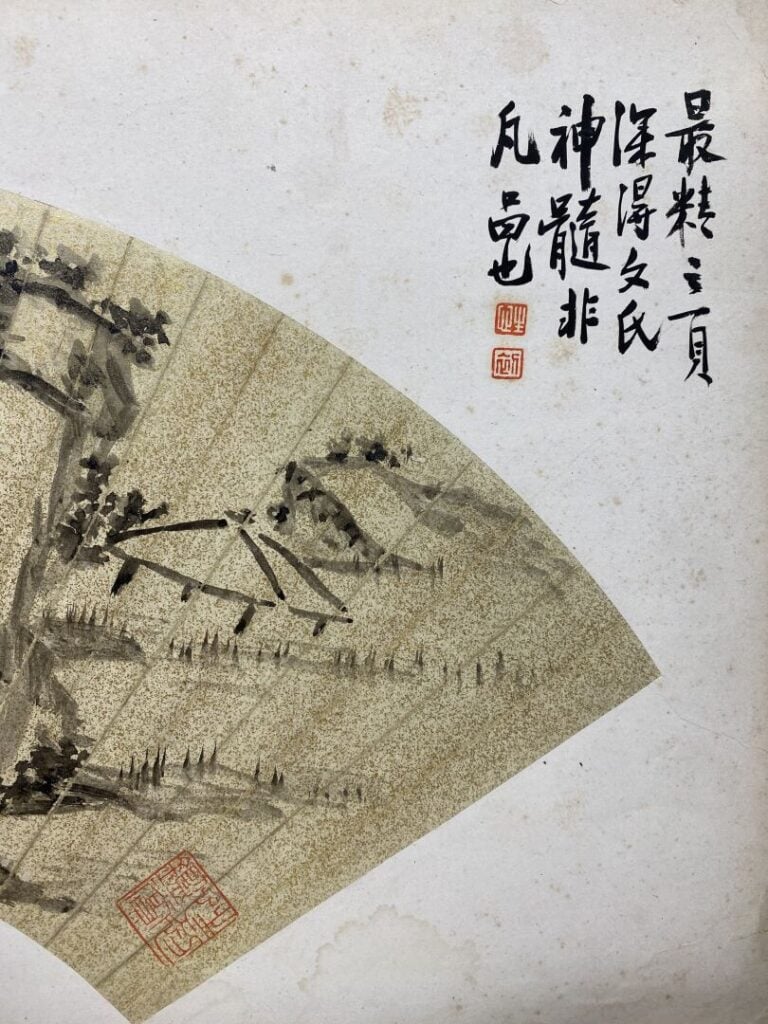 最精之頁
深得文氏
神髓非
凡品也